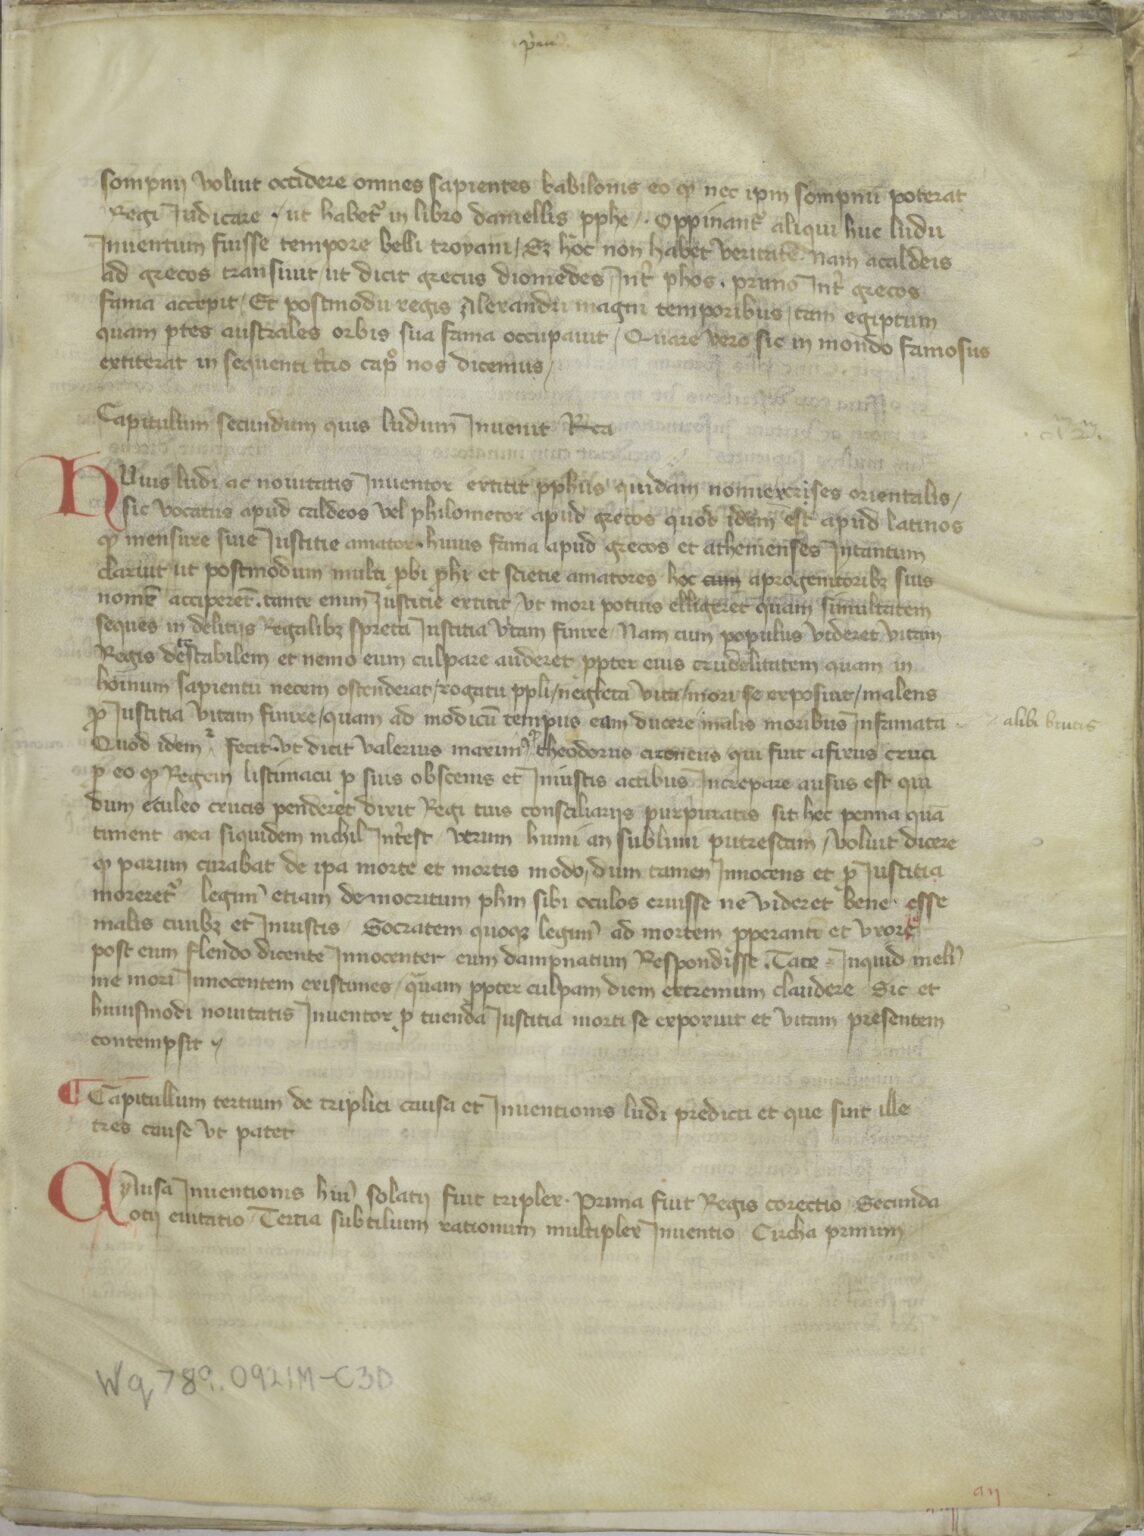 sompnij voluit occidere omnes sapientes babilonis eo qꝫ nec ipm̄ sompnū poterat
Regi Iudicare . ut habet᷑ in libro daniellis pphe . Oppinant᷑ aliqui huc ludū
Inventum fuisse tempore belli troyani / Sꝫ hoc non habet veritatē Nam acaldeis
ad grecos transivit ut dicit grecus diomedes Int᷑ phos . primo Int᷑ grecos
fama accepit / Et postmodū regis Alexandri magni temporibus / tam egiptum
quam ptes australes orbis sua fama occupavit / Quare vero sic in mondo famosus
extiterat in sequenti tr̄io cap᷑ nos dicemus /
Capitulum secundum quis ludum Invenit
HUius ludi ac novitatis Inventor extitit pphūs quidam orientalis /
sic vocatus apud caldeos vel philometor apud grecos quod idem est apud latinos
qꝫ mensure sive Iustitie amator . huius fama apud grecos et athenienses Intantum
claruit ut postmodum multi pbi phi et sc̄ietie amatores hoc cum aprogenitoribꝫ suis
nomē acciperēt . tante enim Iustitie extitit ut mori potius elligeret quam simultatem
seques in delitijs Regalibꝫ spreta Iustitia vitam finire Nam cum populus videret vitam
Regis detestabilem et nemo eum culpare auderet ppter eius crudelitatem quam in
hoīnum sapientū necem ostenderat / rogatu ppli / neglecta vita / mori se exposuit / malens
ꝑ Iustitia vitam finire / quam ad modicū tempus eam ducere malis moribus Infamatā
alibi brutis
Quod idem fecit . ut dicit valerius maxim᷒ theodorus cireneus qui fuit afixus cruci
p eo qꝫ Regem listimacū p suis obscenis et Iniustis actibus Increpare ausus est qui
dum eculeo crucis penderet dixit Regi tuis consciliarijs purpuratis sit hec penna quā
timent mea siquidem nichil Int᷑est verum humi an sublimi putrescam / voluit dicere
qꝫ parum curabat de ipa morte et mortis modo / dum tamen Innocens et p Iustitia
moreret᷑ legim᷒ etiam democritum phm sibi oculos eruisse ne videret bene esse
malis civibꝫ et Iniustis Socratem quoqꝫ legim᷒ ad mortem pperantē et vxorē
post eum flendo dicente Innocenter eum dampnatum Respondisse . Tace Inquid meli᷒
me mori Innocentem existimes / quam ppter culpam diem extremum claudere Sic et
huiusmodi novitatis Inventor p tuenda Iustitia morti se exposuit et vitam presentem
contempsit
¶ Capitullum tertium de triplici causa et Inventionis ludi predicti et que sint ille
tres cause ut patet
CAusa Inventionis hui᷒ solatij fuit triplex . Prima fuit Regis corectio Secunda
otij evitatio Tertia subtilium rationum multiplex Inventio Circha primum
Wq 789.0921M-C3D